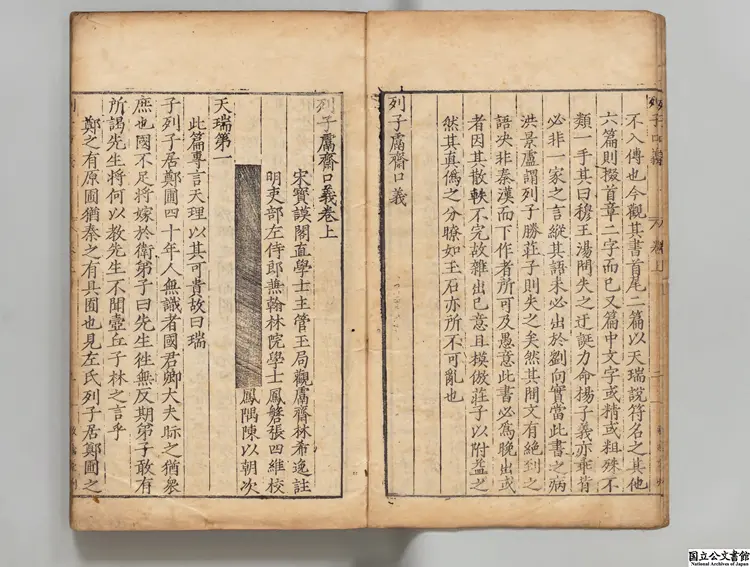 不入傳也今觀其書首尾二篇以天瑞說符名之其他
六篇則掇首章二字而已又篇中文字或精或粗殊不
類一手其曰穆王湯問失之迂誕力命揚子義亦乖背
必非一家之言縱其語未必出於劉向實當此書之病
洪景盧謂列子勝莊子則失之矣然其間文有絕到之
語決非秦漢而下作者所可及愚意此書必為晚出或
者因其散軼不完故雜出己意且模倣莊子以附益之
然其真偽之分瞭如玉石亦所不可亂也
列子鬳齋口義
列子鬳齋口義卷上
宋寶謨閣直學士主管玉局觀鬳齋林希逸註
明吏部左侍郎兼翰林院學士鳳磐張四維校
鳳隅陳以朝次
天瑞第一
此篇專言天理以其可貴故曰瑞
子列子居鄭圃四十年人無識者國君卿大夫眎之猶眾
庶也國不足將嫁於衛弟子曰先生往無反期弟子敢有
所謁先生將何以教先生不聞壺丘子林之言乎
鄭之有原圃猶秦之有具囿也見左氏列子居鄭圃之
国立公文書館
National Archives of Japan